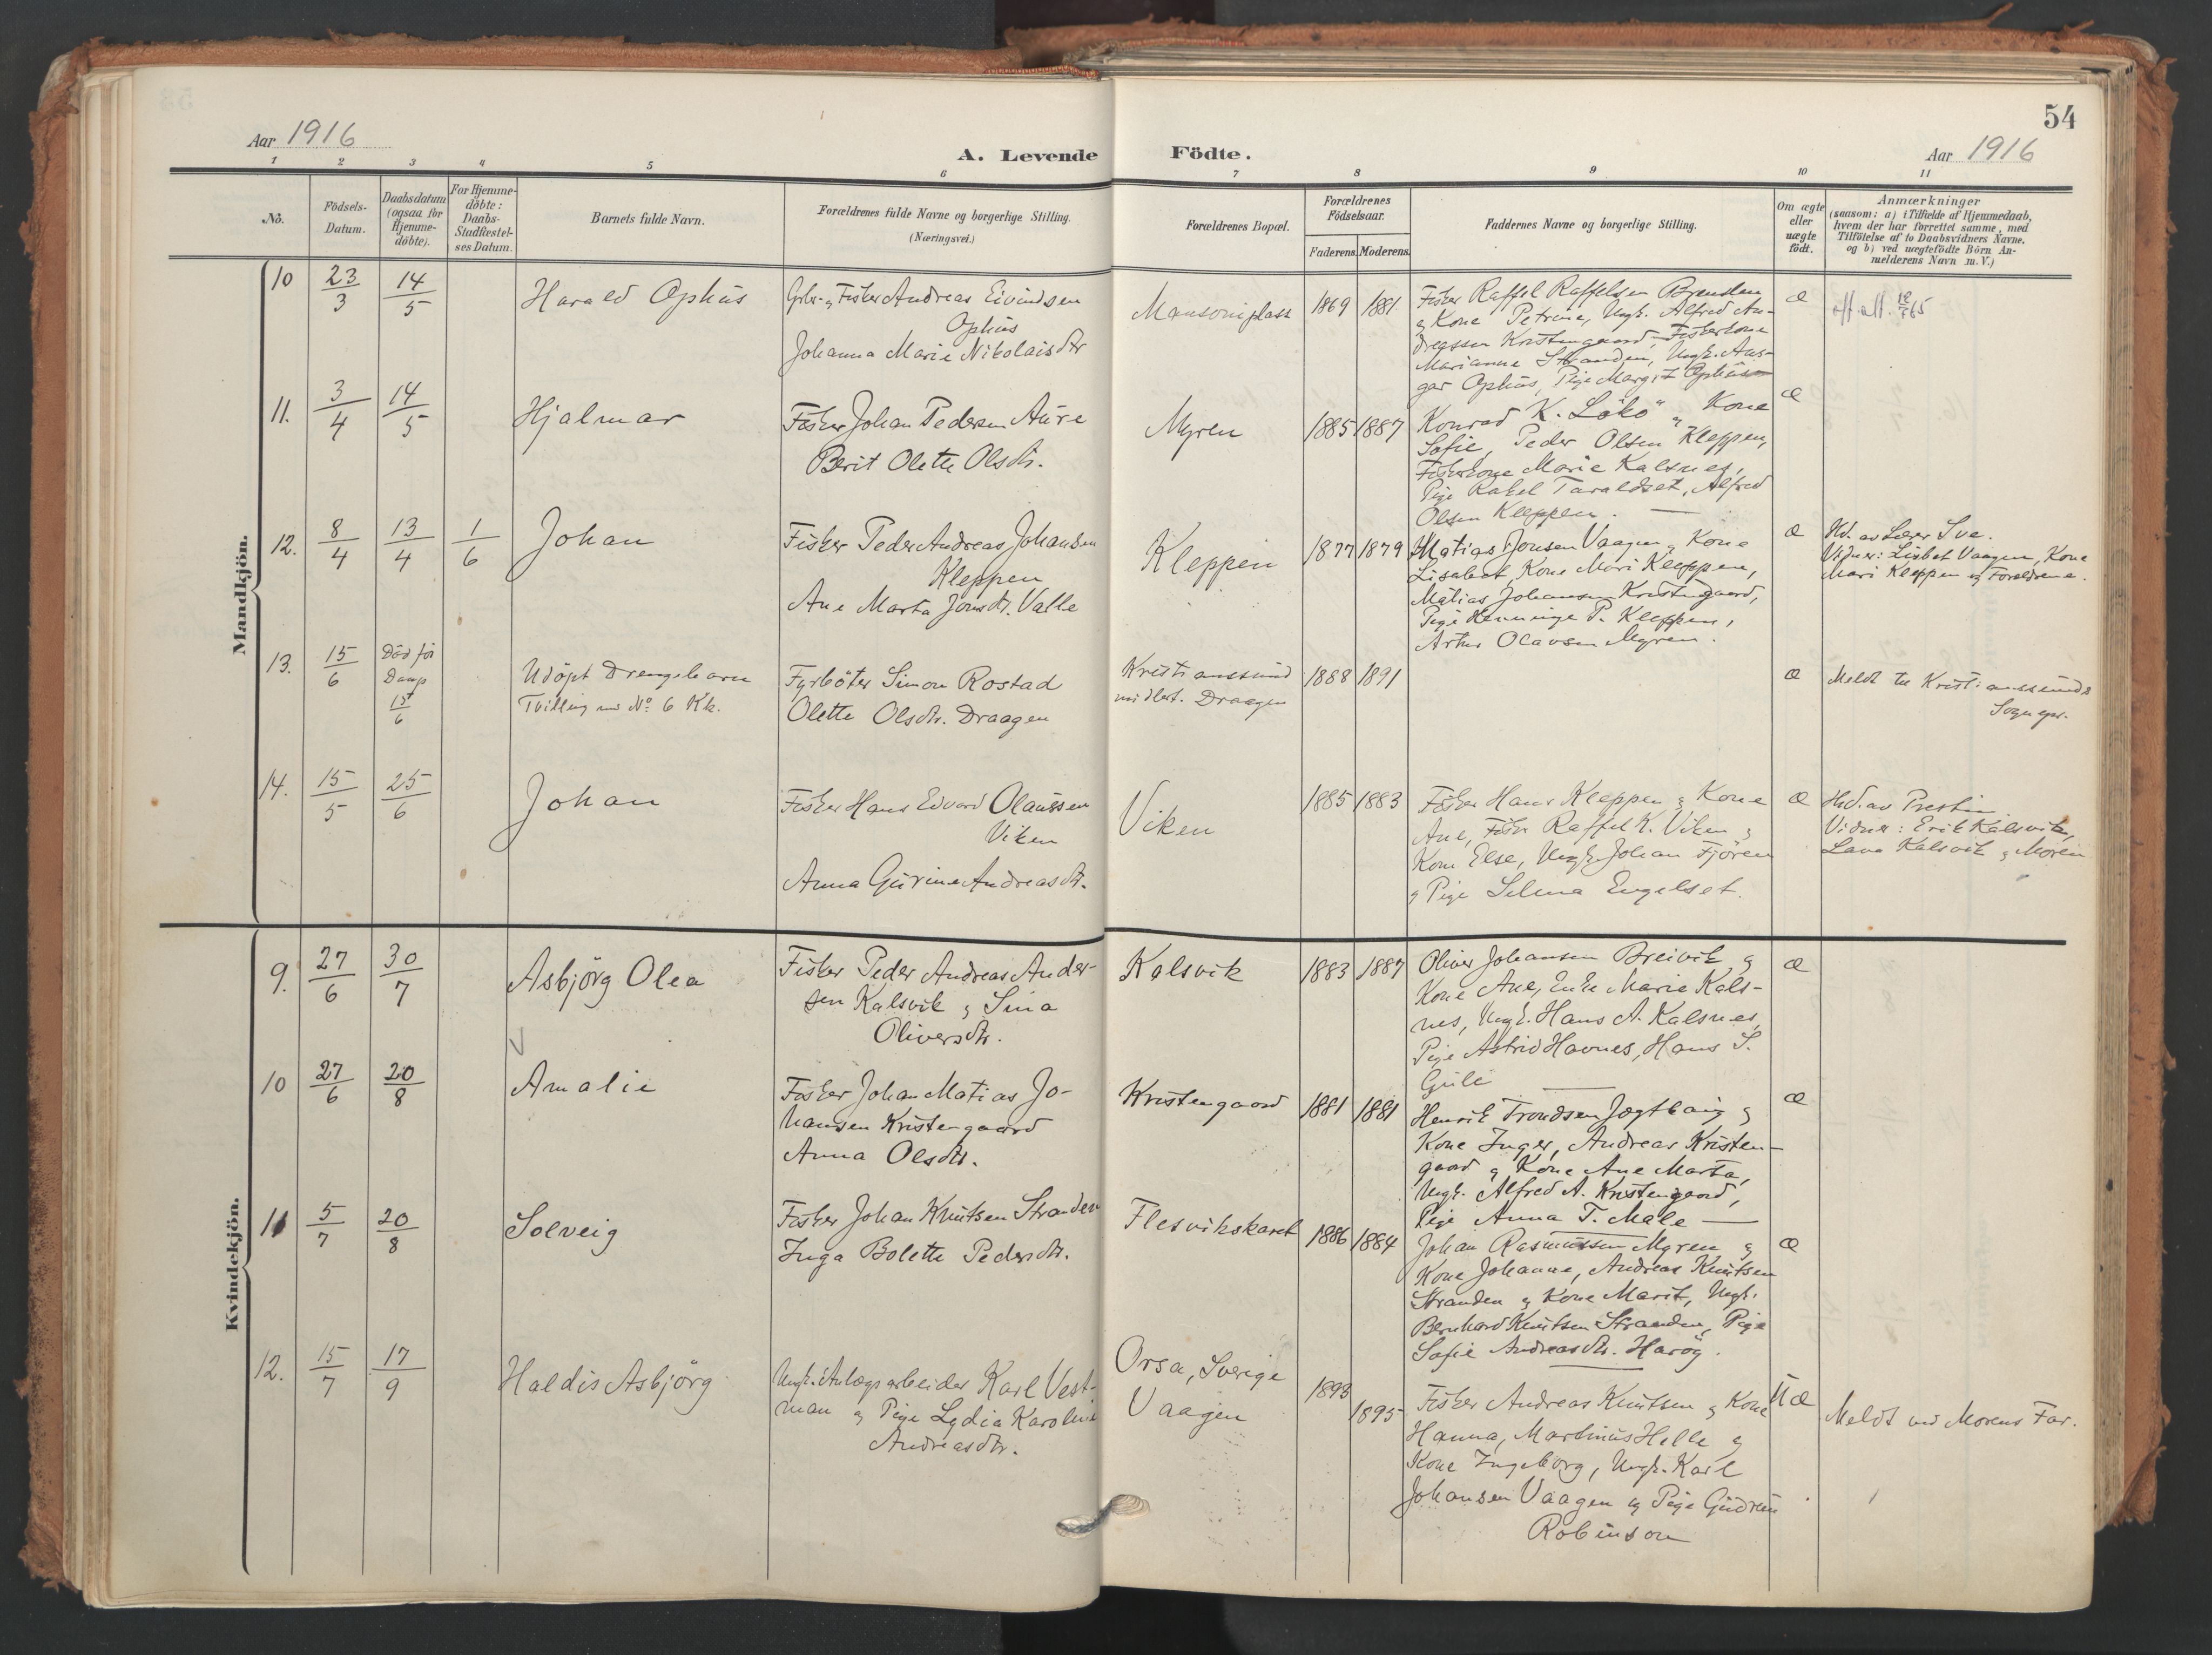 54
Aar 1916
A. Levende Födte.
Aar 1916
1 2 3 4 5 6 7 8 9 10 11
No.
Födsels-
Datum.
Daabsdatum
(ogsaa for
Hjemme-
döbte).
For Hjemme-
döbte:
Daabs-
Stadfæstel-
ses Datum.
Barnets fulde Navn.
Forældrenes fulde Navne og borgerlige Stilling.
(Næringsvei.)
Forældrenes Bopæl.
Forældrenes
Födselsaar.
Faderens. Moderens.
Faddernes Navne og borgerlige Stilling.
Om ægte
eller
uægte
födt.
Anmærkninger
(saasom: a) i Tilfælde af Hjemmedaab,
hvem der har forrettet samme, med
Tilföielse af to Daabsvidners Navne,
og b) ved uægtefödte Börn An-
melderens Navn m. V.)
Mandkjön.
10
23/3
14/5
Harald Ophus
Gbr. og Fisker Andreas Eivindsen
Ophus
Johanna Marie Nikolaisdtr
Mansoniplass
1869 1881
Fisker Raffel Raffelsen
og Kone Petrine, Ungk. Alfred An-
dreassen Kristengaard, Fiskerkone
Marianne Stranden, Ungk. Ans-
gar Ophus, Pige Margit Ophus
Æ
11.
3/4
14/5
Hjalmar
Fisker Johan Pedersen Aure
Berit Olette Olsdtr.
Myren
1885 1887
Konrad K. Lökö og Kone
Sofie, Peder Olsen Kleppen,
Fiskerkone Marie Kalsnes,
Pige Rakel Taraldset, Alfred
Olsen Kleppen.
Æ
12.
8/4
13/4
1/6
Johan
Fisker Peder Andreas Johansen
Kleppen
Ane Marta Jonsdtr. Valle
Kleppen
1877 1879
Matias Jonsen Vaagen og Kone
Lisabet, Kone Mari Kleppen,
Matias Johansen Kristengaard,
Pige Henninge P. Kleppen,
Artur Olavsen Myren.
Æ
Hd. av Lærer Sve.
Vidner: Lisbet Vaagen, Kone
Mari Kleppen og Forældrene.
13.
15/6
Död för
Daap
15/6
Udöpt Drengebarn
Tvilling m No 6 Kk.
Fyrböter Simon Rostad
Olette Olsdtr. Draagen
Kristianssund
midlert. Draagen
1888 1891
Æ
Meldt til Kristianssunds
Sognepr.
14.
15/5
25/6
Johan
Fisker Hans Edvard Olaussen
Viken
Anna Gurine Andreasdtr.
Viken
1885 1883
Fisker Hans Kleppen og Kone
Ane, Fisker Raffel K. Viken og
Kone Else, Ungk. Johan Fjören
og Pige Selma Engelset.
Æ
Hd. av Presten
Vidner: Erik Kalsvik,
Lava Kalsvik og Moren
Kvindekjön.
9.
27/6
30/7
Asbjörg Olea
Fisker Peder Andreas Ander-
sen Kalsvik og Sina
Oliversdtr.
Kalsvik
1883 1887
Oliver Johansen Breivik og
Kone Ane, Enke Marie Kals-
nes, Ungk. Hans A. Kalsnes,
Pige Astrid Havnes, Hans S.
Gule
Æ
10
27/6
20/8
Amalie
Fisker Johan Matias Jo-
hansen Kristengaard
Anna Olsdtr.
Kristengaard
1881 1881
Henrik Trondsen Jægtbaug og
Kone Inger, Andreas Kristen-
gaard og Kone Ane Marta,
Ungk. Alfred A. Kristengaard,
Pige Anna T. Male
Æ
11
5/7
20/8
Solveig
Fisker Johan Knutsen Stranden
Inga Bolette Pedersdtr.
Flesvikskaret
1886 1884
Johan Rasmussen Myren og
Kone Johanne, Andreas Knutsen
Stranden og Kone Marit, Ungk.
Bernhard Knutsen Stranden, Pige
Sofie Andreasdtr. Haröy.
Æ
12.
15/7
17/9
Haldis Asbjörg
Ungk. Anlægsarbeider Karl Vest-
man og Pige Lydia Karoline
Andreasdtr.
Orsa, Sverige
Vaagen
1893
1895
Fisker Andreas Knutsen og Kone
Hanna, Martinus Helle og
Kone Ingeborg, Ungk. Karl
Johansen Vaagen og Pige Gudrun
Robinson
Uæ
Meldt ved Morens Far.